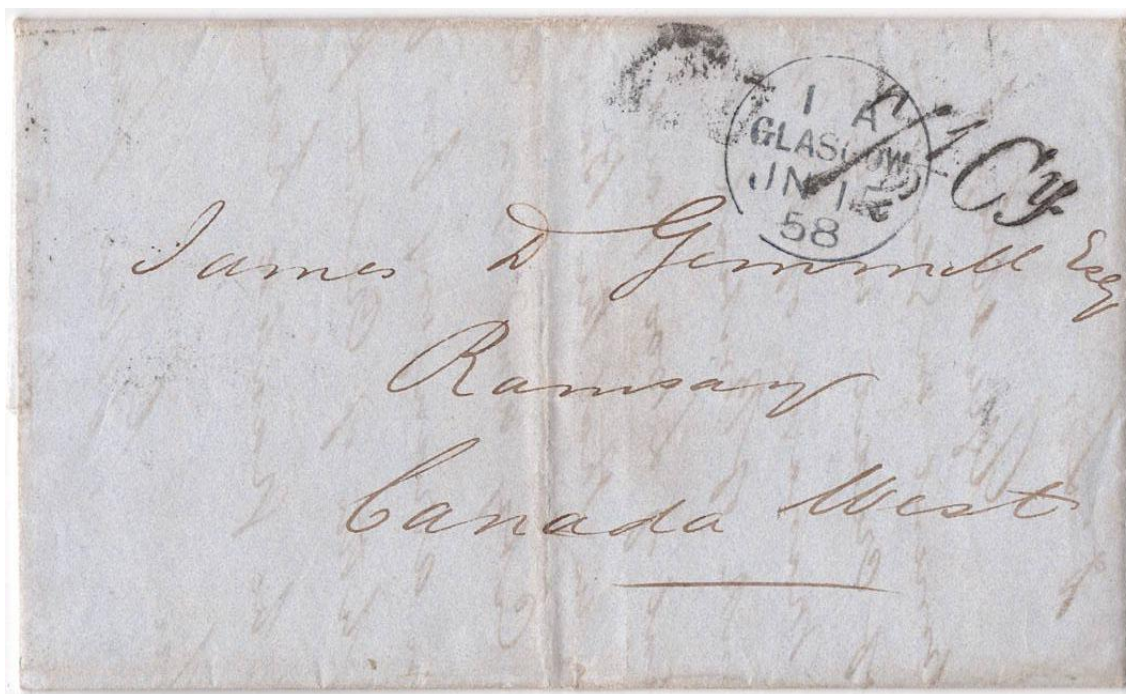 1 A
GLASGOW
JN 1
58
Cy
James D Gemmill Esq
Ramsay
Canada West